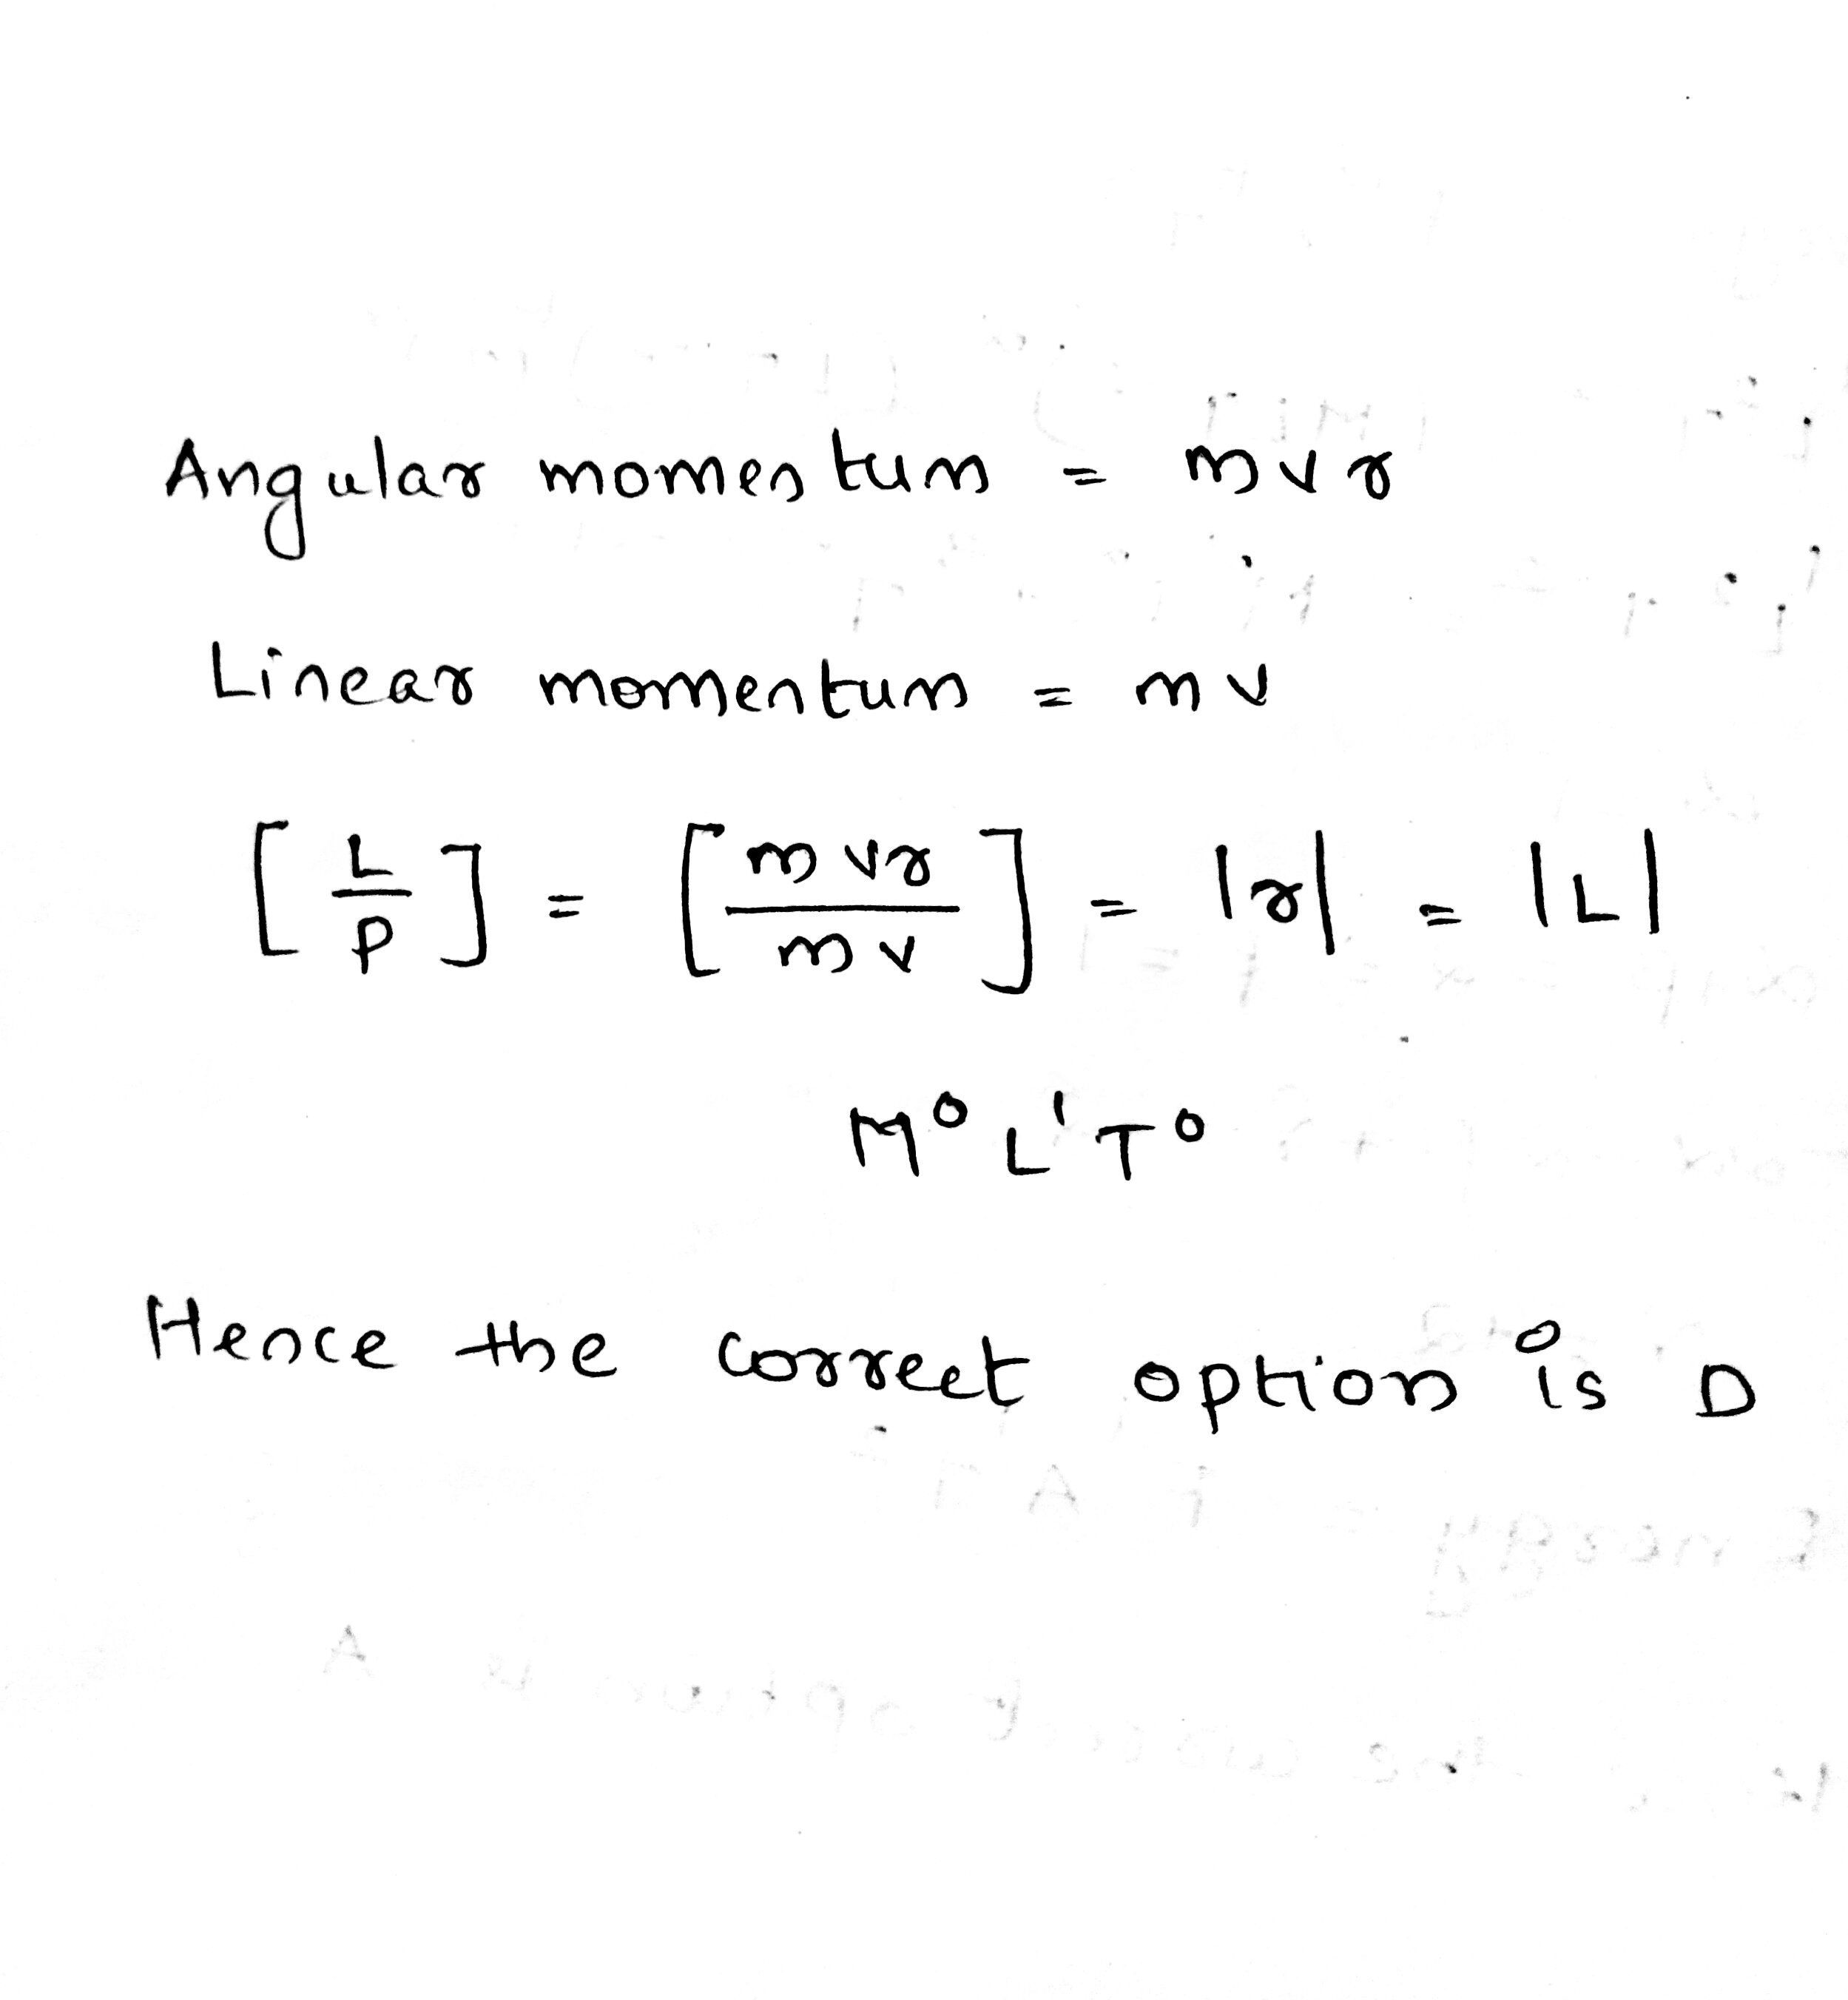 Angular momentum = mvr
Linear momentum = mv
[L/P] = [mvr/mv] = |r| = |L|
M⁰ L¹ T⁰
Hence the correct option is D